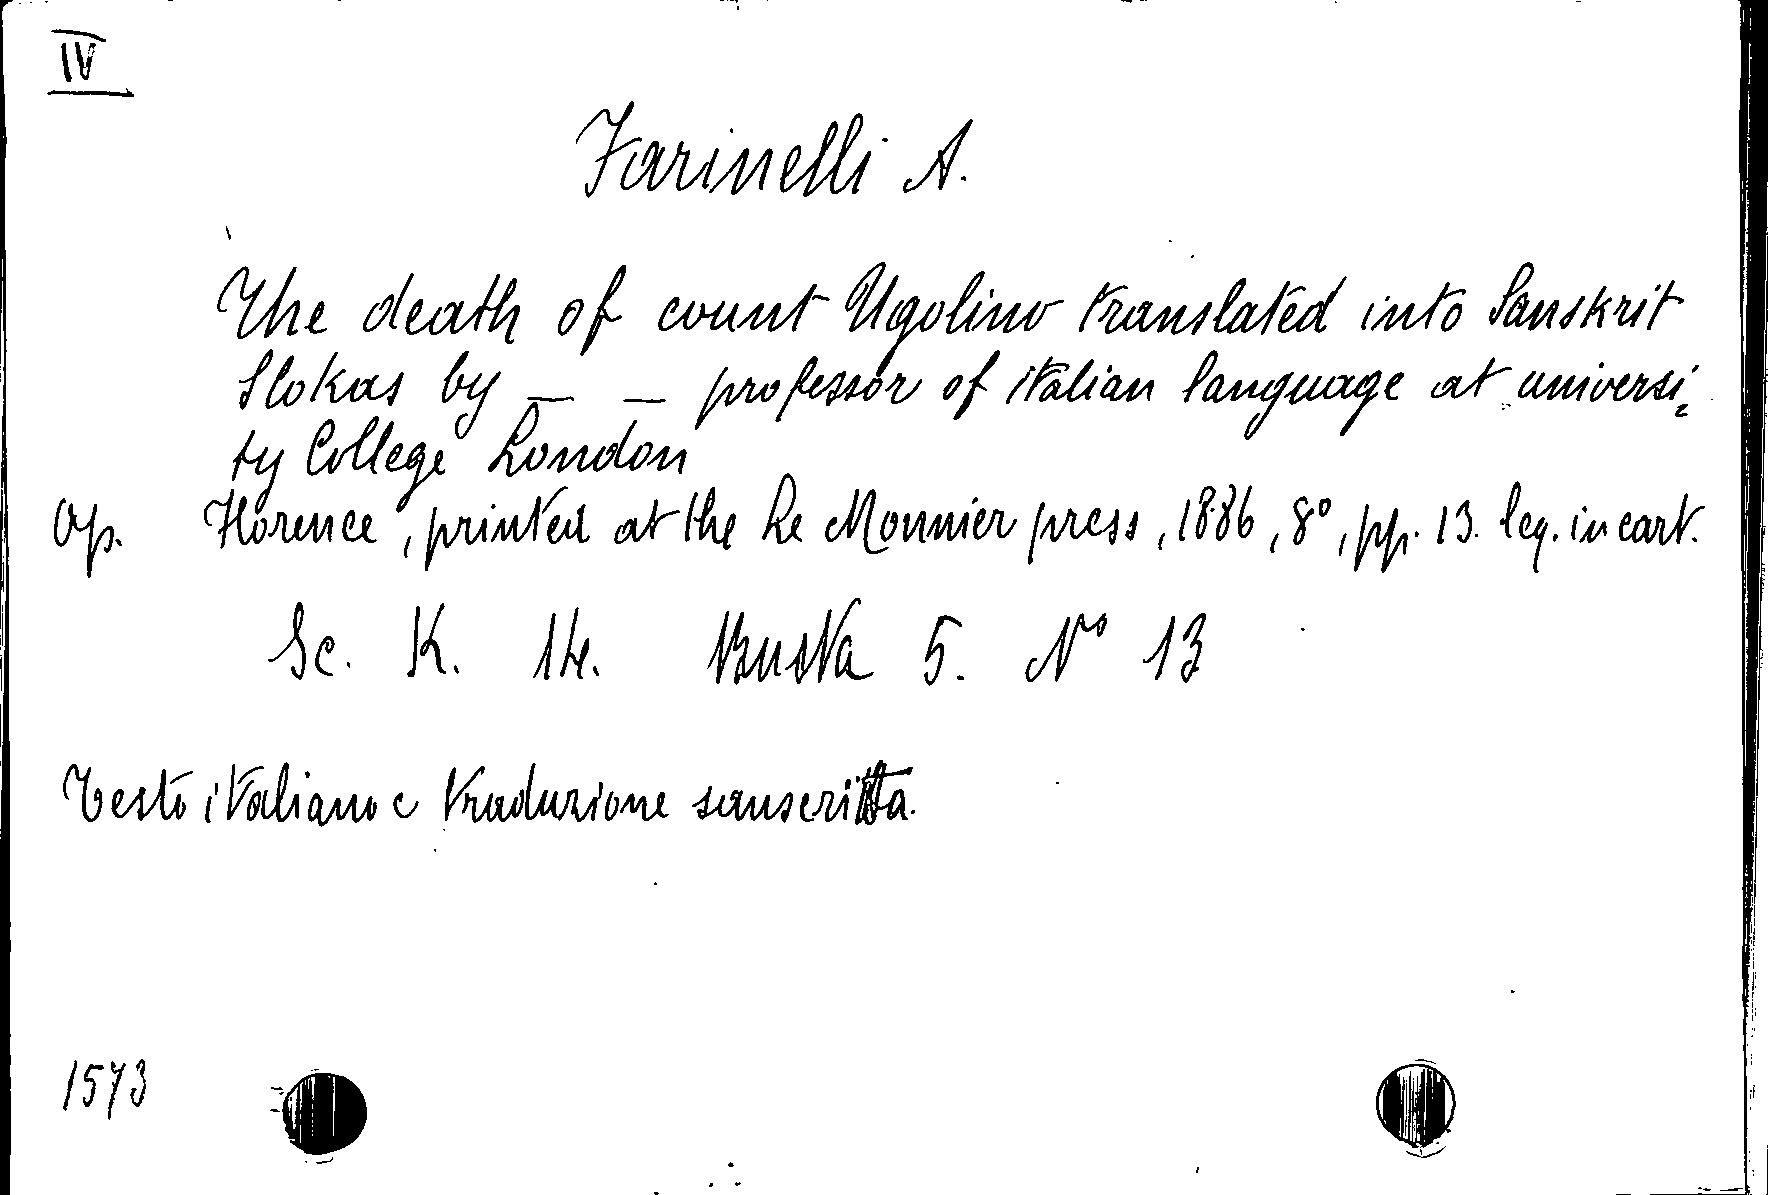 IV
Farinelli A.
The death of count Ugolino translated into Sanskrit
Slokas by — — professor of italian language at universi=
ty College London
Op. Florence, printed at the Le Monnier press, 1886, 8°, pp. 13. leg. in cart.
Sc. K. 14. Busta 5. N° 13
Testo italiano e traduzione sanscritta.
1573